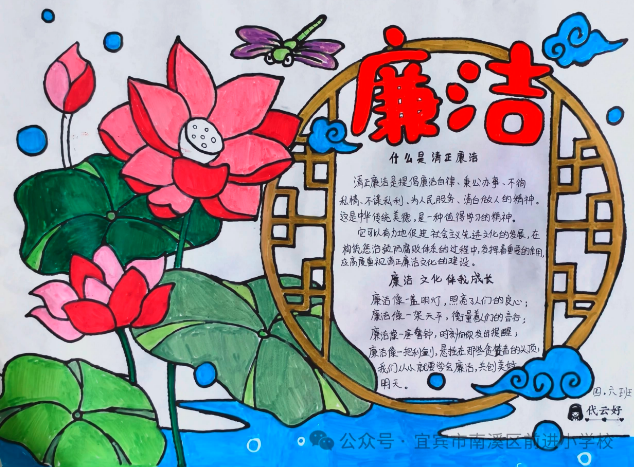 廉洁
什么是清正廉洁
清正廉洁是提倡廉洁自律、秉公办事、不徇
私情、不谋私利、为人民服务、清白做人的精神。
这是中华传统美德，是一种值得学习的精神。
它可以有力地促进社会主义先进文化的发展，在
构筑惩治和防腐败体系的过程中，发挥着重要的作用，
应高度重视清正廉洁文化的建设。
廉洁文化伴我成长
廉洁像一盏明灯，照亮了人们的良心；
廉洁像一架天平，衡量着我们的言行；
廉洁像一座警钟，时刻向我发出提醒；
廉洁像一把利剑，悬挂在那些贪婪者的头顶；
我们从小就要学会廉洁，共创美好
明天。
四.六班
代云好
公众号·宜宾市南溪区前进小学校